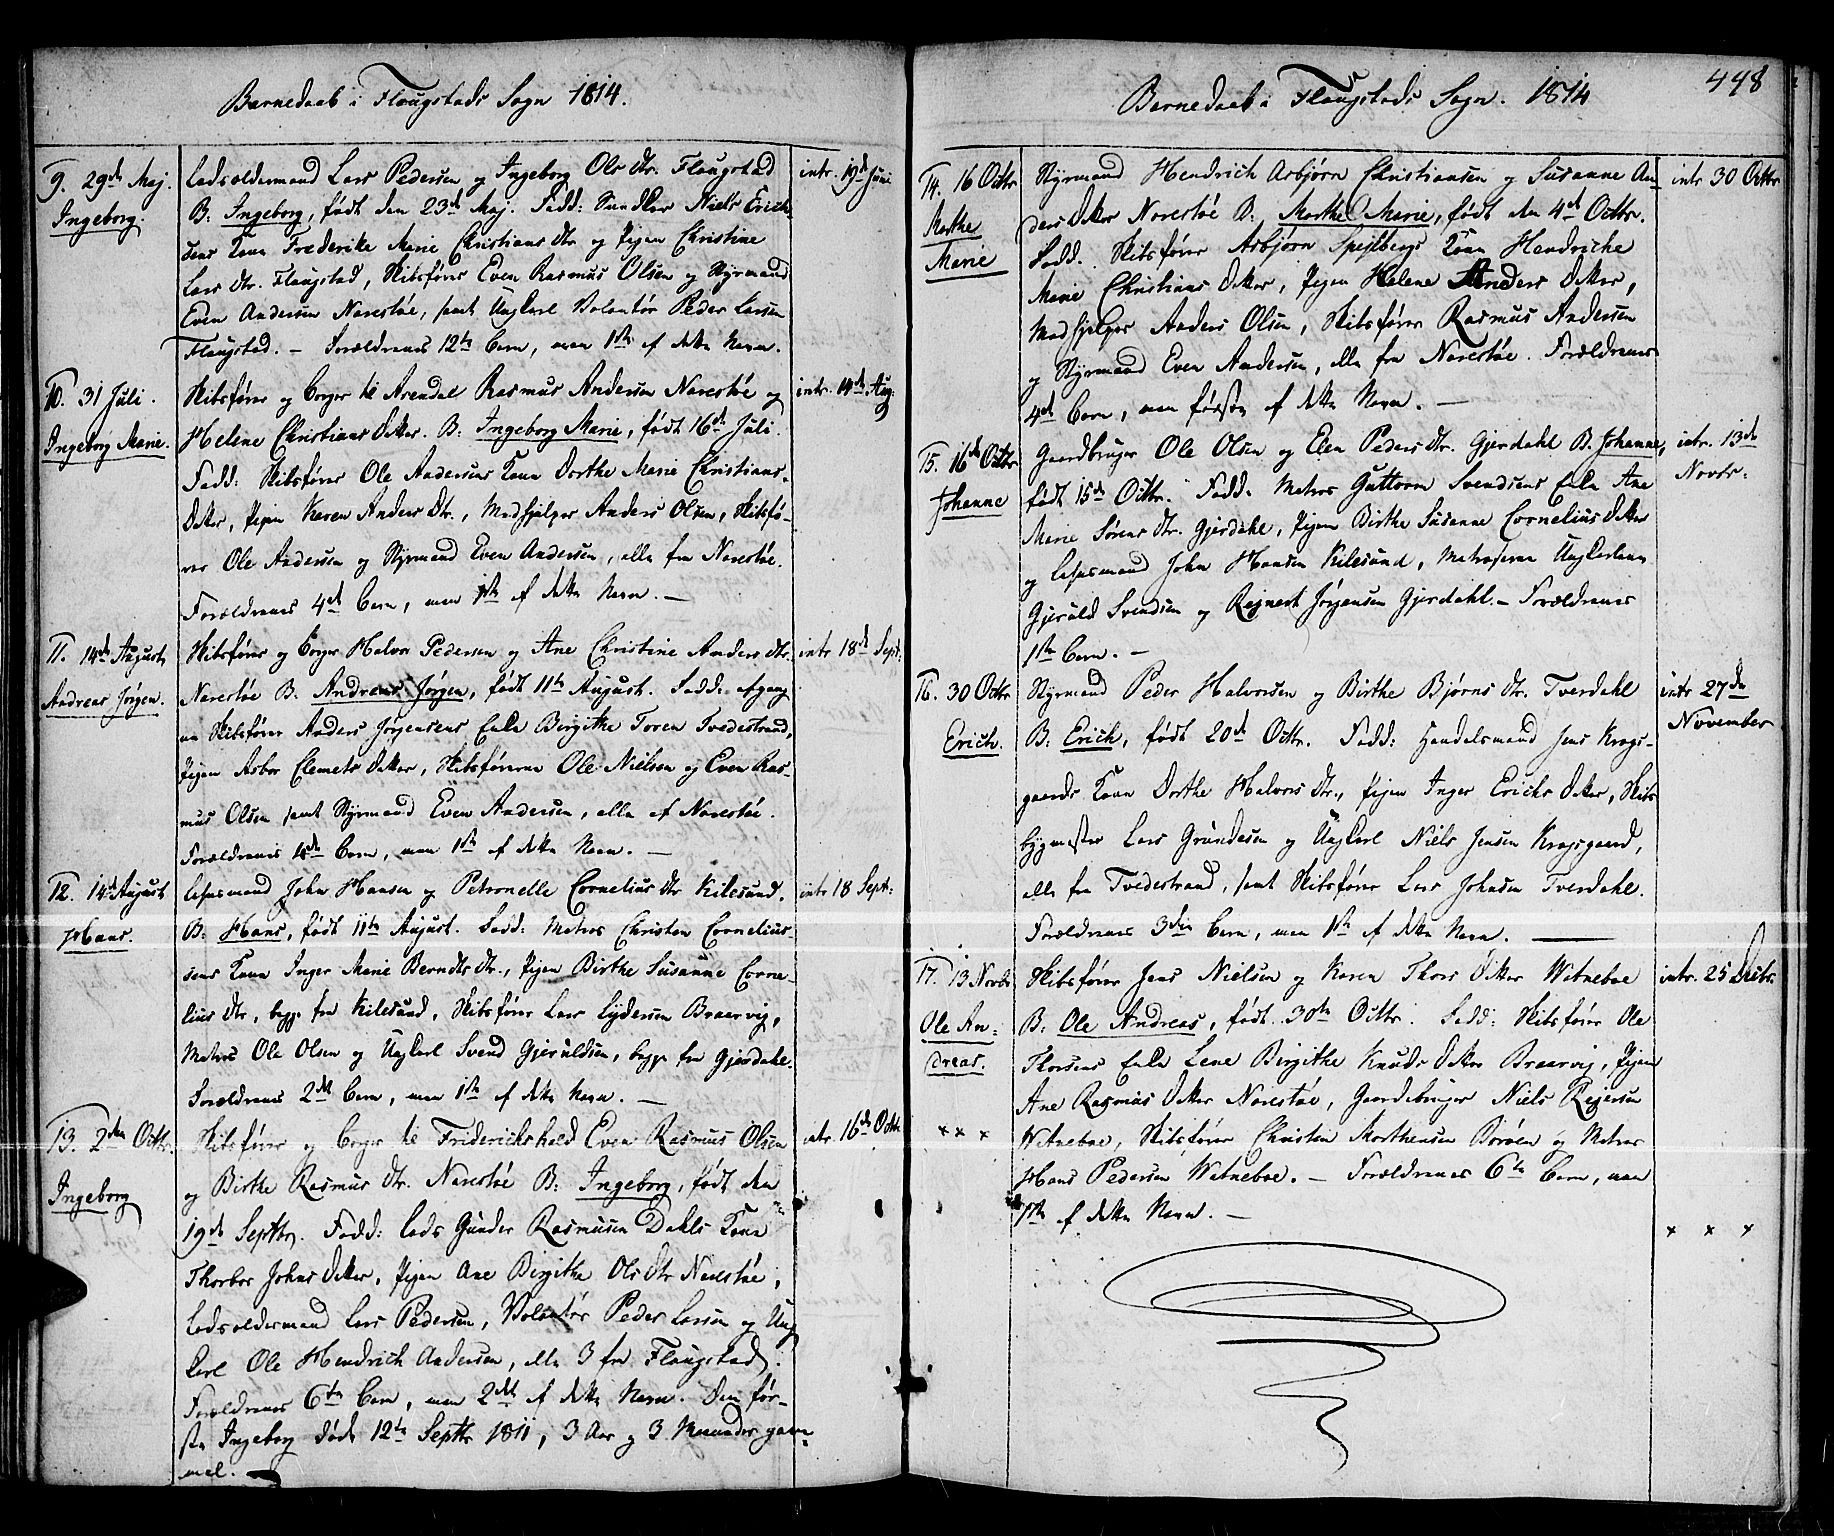 Barnedaab i Flaugstads Sogn 1814.
9. 29de Maj.
Ingeborg.
Lodsoldermand Lars Pedersen og Ingeborg Ols dtr. Flaugstad
B: Ingeborg, født den 23de Maj. Fadd: Sundtler Niels Erich-
sens Kone Frederike Marie Christians dtr. og Pigen Christine
Lars dtr. Flaugstad, Skibsfører Even Rasmus Olsen og Styrmand
Even Andersen Narestøe, samt Ungkarl Volontør Peder Larsen
Flaugstad. — Forældrenes 12te Barn, men 1ste af dette Navn.
intr. 19de Juni
10. 31 Juli.
Ingeborg Marie.
Skibsfører og Borger til Arendal Rasmus Andersen Narestøe og
Helene Christians Datter. B: Ingeborg Marie, født 16de Juli.
Fadd: Skibsfører Ole Andersens Kone Dorthe Marie Christians-
Datter, Pigen Karen Anders Dtr., Medhjelper Anders Olsen, Skibsfø-
rer Ole Andersen og Styrmand Even Andersen, alle fra Narestøe.
Forældrenes 4de Barn, men 1ste af dette Navn. —
intr. 14de Aug:
11. 14de August
Andreas Jørgen.
Skibsfører og Borger Halvor Pedersen og Ane Christine Anders dtr.
Narestøe B: Andreas Jørgen, født 11te August. Fadd: afgang-
ne Skibsfører Anders Jørgensens Enke Birgithe Toren Tvedestrand,
Pigen Asbor Clemets Datter, Skibsførerne Ole Nielsen og Even Ras-
mus Olsen samt Styrmand Even Andersen, alle af Narestøe.
Forældrenes 4de Barn, men 1ste af dette Navn. —
intr 18de Sept:
12. 14de August
Hans.
Lensmand John Hansen og Petronelle Cornelius dtr Kilesund.
B: Hans, født 11te August. Fadd: Matros Christen Cornelius-
sens Kone Inger Marie Berndts dtr., Pigen Birthe Susanne Corne-
lius dtr, begge fra Kilesund, Skibsfører Lars Lydersen Braarvig,
Matros Ole Olsen og Ungkarl Svend Gjeruldsen, begge fra Gjerdahl.
Forældrenes 2det Barn, men 1ste af dette Navn. —
intr 18 Sept:
13. 2den Octbr.
Ingeborg
Skibsfører og Borger til Friderichshald Even Rasmus Olsen
og Birthe Rasmus dtr. Narestøe B: Ingeborg, født den
19de Septbr. Fadd: Lods Gunder Rasmusen Dahls Kone
Thorbor Johns Datter, Pigen Ane Birgithe Ols dtr Narestøe,
Lodsoldermand Lars Pedersen, Volontør Peder Larsen og Ung
karl Ole Hendrich Andersen, alle 3 fra Flaugstad.
Forældrenes 6te Barn, men 2det af dette Navn. Den før-
ste Ingeborg døde 12te Septbr 1811, 3 Aar og 3 Maaneder gam-
mel. —
intr. 16de Octbr
Barnedaab i Flaugstads Sogn. 1814
448
14. 16 Octbr
Marthe
Marie
Styrmand Hendrich Asbjørn Christiansen og Susanne An-
ders Datter Narestøe B: Marthe Marie, født den 4de Octbr.
Fadd. Skibsfører Asbjørn Spejlbergs Kone Hendriche
Marie Christians Datter, Pigen Helene Anders Datter,
Medhjelper Anders Olsen, Skibsfører Rasmus Andersen
og Styrmand Even Andersen, alle fra Narestøe. Forældrenes
4de Barn, men første af dette Navn. —
intr 30 Octbr
15. 16de Octbr
Johanne
Gaardbruger Ole Olsen og Elen Peders dtr. Gjerdahl B. Johanne,
født 15de Octbr. Fadd: Matros Guttorm Svendsens Enke Ane
Marie Sørens dtr. Gjerdahl, Pigen Birthe Susanne Cornelius Datter
og Lensmand John Hansen Kilesund, Matroserne Ungkarlene
Gjeruld Svendsen og Rejnert Jørgensen Gjerdahl. — Forældrenes
1ste Barn. —
intr. 13de
Novbr.
16. 30 Octbr.
Erich.
Styrmand Peder Halvorsen og Birthe Bjørns dtr. Tverdahl
B: Erich, født 20de Octbr. Fadd: Handelsmand Jens Krogs-
gaards Kone Dorthe Halvors dtr., Pigen Inger Erichs Datter, Skibs
bygmester Lars Gundesen og Ungkarl Niels Jensen Krogsgaard,
alle fra Tvedestrand, samt Skibsfører Lars Johnsen Tverdahl.
Forældrenes 3die Barn, men 1ste af dette Navn. —
intr 27de
November
17. 13 Novbr
Ole An-
dreas.
× × ×
Skibsfører Jens Nielsen og Karen Thors Datter Watneboe
B: Ole Andreas, født 30te Octbr. Fadd: Skibsfører Ole
Thorsens Enke Lene Birgithe Knuds Datter Braarvig, Pigen
Ane Rasmus Datter Narestøe, Gaardebruger Niels Rejersen
Watneboe, Skibsfører Christen Morthensen Borøen og Matros
Hans Pedersen Watneboe. — Forældrenes 6te Barn, men
1ste af dette Navn. —
intr. 25 Decbr.
× × ×